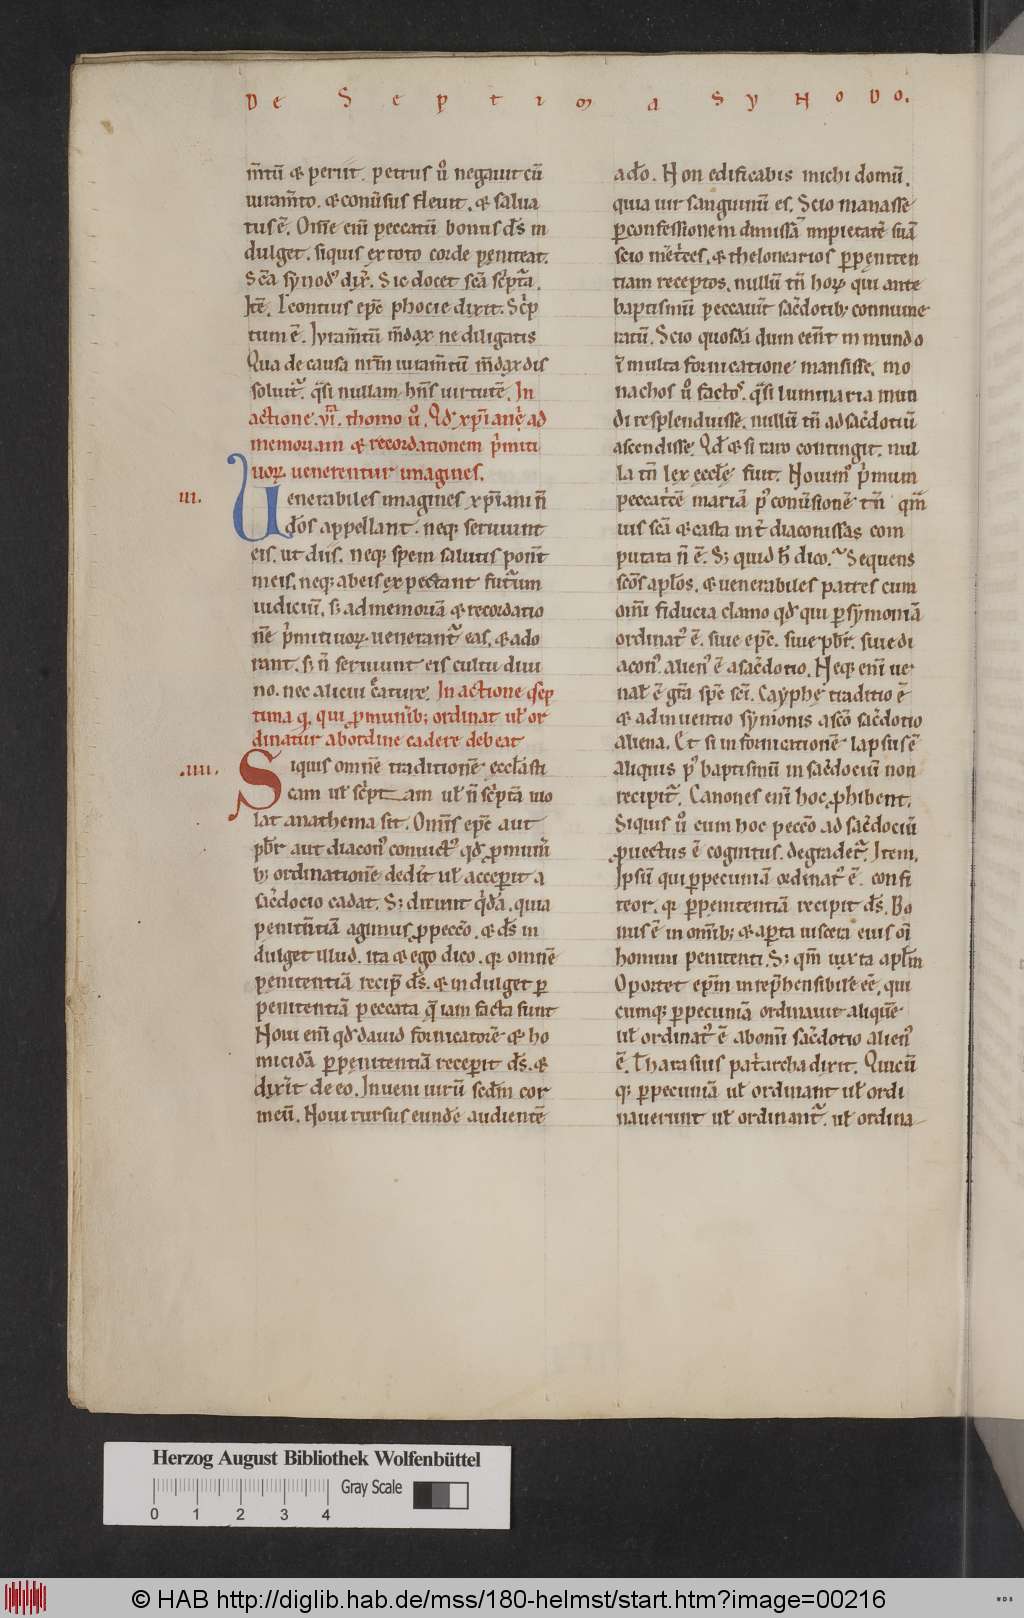 DE SEPTIMA SYNODO.
m̄tū & periit. petrus ů negauit cū
iuram̄to. & conůsus fleuit. & salua
tus ē. Om̄e eni peccatū bonus d̄s in
dulget. siquis ex toto corde pęniteat.
Scā synod᾽ dix̄. Sic docet scā sc̄ptā.
Itē. Leontius ep̄c phocie dixit. Sc̄p
tum ē. Iuram̄tū m̄dax ne diligatis
Qua de causa nr̄m iuram̄tū m̄dax dis
soluit᷑. q̄si nullam hn̄s uirtutē. In
actione .vi. thomo ů. Qd̄ xp̄iani ad
memoriam & recordationem p̄miti
uoꝝ uenerentur imagines.
.iii. Venerabiles imagines xp̄iani n̄
deos appellant. neq; seruiunt
eis. ut diis. neq; spem salutis ponūt
in eis. neq; ab eis expectant futurum
iudiciū. s; ad memoriā & recordatio
nē p̄mitiuoꝝ uenerant᷑ eas. & ado
rant. s; n̄ seruiunt eis cultu diui
no. nec alicui c̄ature. In actione sep
tima q. qui p munīb; ordinat uł or
dinatur ab ordine cadere debeat
.iiii. Siquis omnē traditionē eccłasti
cam uł sc̄ptam uł n̄ sc̄ptā uio
lat anathema sit. Om̄is ep̄c aut
pb̄r aut diacon᾽ conuict᾽ qd̄ p muner̄
b; ordinationē dedit uł acceperit a
sac̄docio cadat. S; dixunt q̄dā. quia
penitn̄tiā agimus p peccō. & d̄s in
dulget illud. ita & ego dico. qr omnē
penitentiā recip̄ d̄s. & indulget p
penitentiā peccata q̄ iam facta sunt
Noui eni qd̄ dauid fornicatorē & ho
micidā p pęnitentiā recepit d̄s. &
dix̄it de eo. Inueni uirū scdm cor
meū. Noui rursus eundē audientē
a dō. Non edificabis michi domū.
quia uir sanguinū es. Scio manasse
p confessionem dimissā impietatē suā
scio meretrices. & thelonearios p pęniten
tiam receptos. nullū tn̄ hoꝝ qui ante
baptismū peccauit sac̄dotib; connume
ratū. Scio quosdā dum eent in mundo
ī multa fornicatione mansisse. mo
nachos ů factos. q̄si luminaria mun
di resplenduisse. nullū tn̄ ad sac̄dotiū
ascendisse. Qd̄ & si raro contingit. nul
la tn̄ lex eccłę fuit. Nouim᾽ p̄mum
peccatricē mariā p᾽ conuersionē tn̄ qm̄
uis scā & casta int̄ diaconissas com
putata n̄ ē. S; quid h̄ dico. Sequens
scōs apłos. & uenerabiles patres cum
om̄i fiducia clamo qd̄ qui p symoniā
ordinat᾽ ē. siue ep̄c. siue pb̄r. siue di
acon᾽. alien᾽ ē a sac̄dotio. Neq; enī ue
nał ē gr̄a sp̄c sc̄i. Cayphę traditio ē
& adinuentio symonis a scō sac̄dotio
aliena. Et si in fornicationē lapsus ē
aliquis p᾽ baptismū in sac̄dociū non
recipit᷑. Canones enī hoc phibent.
Siquis ů cum hoc peccō ad sac̄dociū
puectus ē cognitus. degradet᷑. Item.
Ipsū qui p pecuniā ordinat᾽ ē. confi
teor. qr p pęnitentiā recipit d̄s. Bo
nus ē in omīb; & apta uiscera eius om̄i
homini penitenti. S; qm̄ iuxta apłm
Oportet ep̄m inrep̄hensibilē eē. qui
cumq; p pecuniā ordinauit aliquē
uł ordinat᾽ ē ab om̄i sac̄dotio alien᾽
ē. Tharasius pat̄archa dixit. Quicū
q; p pecuniā uł ordinant uł ordi
nauerunt uł ordinant᷑. uł ordina
Herzog August Bibliothek Wolfenbüttel
Gray Scale
0 1 2 3 4
© HAB http://diglib.hab.de/mss/180-helmst/start.htm?image=00216